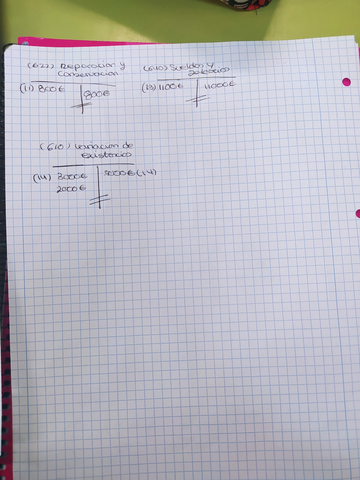 (622) Reparación y
Conservación
(11) 800€ 800€
(640) Sueldos y
salarios
(13) 1100€ 11000€
(610) Variación de
existencias
(14) 3000€ 5000€ (14)
2000€